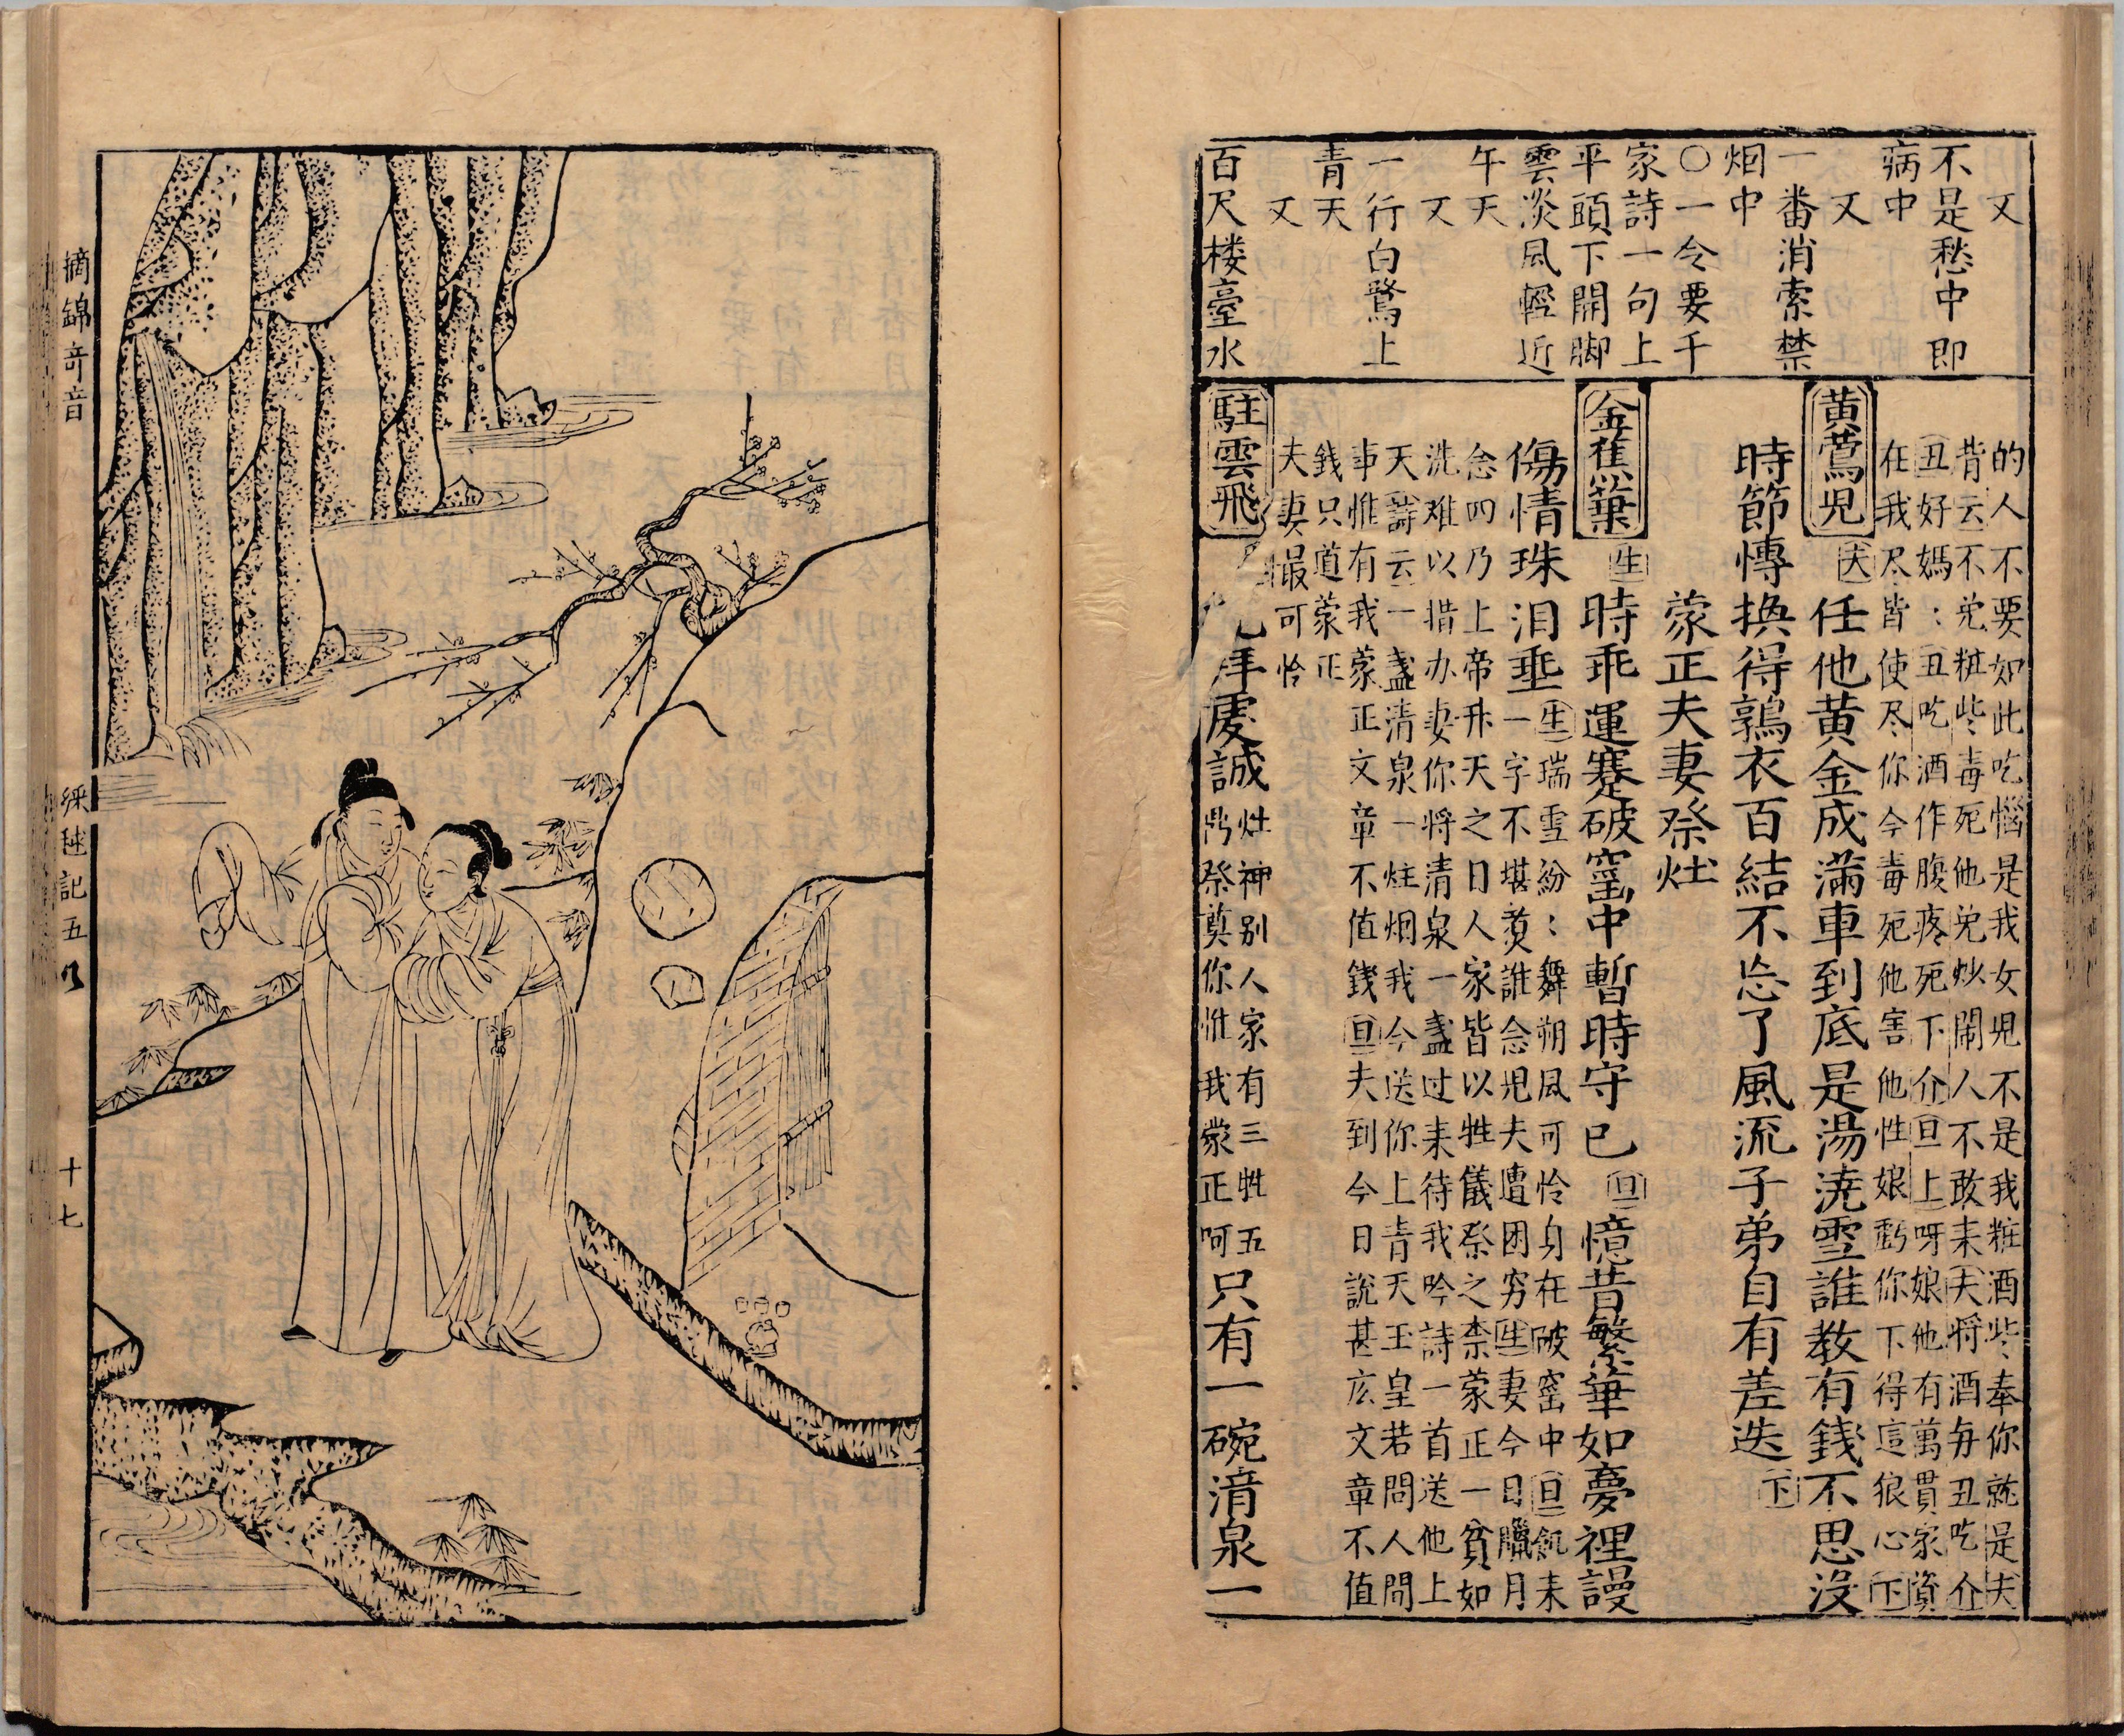 又
不是愁中即
病中
又
一番消索禁
烟中
○一令要千
家詩一句上
平頭下開脚
雲淡風輕近
午天
又
一行白鷺上
青天
又
百尺楼臺水
的人不要如此吃惱是我女児不是我粧酒些奉你就是夫
昔云不免粧些毒死他免炒鬧人不敢来夫將酒与丑吃介
丑好媽:丑吃酒作腹疼死下介旦上呀娘他有萬貫家資
在我尽皆使尽你今毒死他害他性娘虧你下得這狠心下
黄鶯児 夫 任他黄金成滿車到底是湯澆雪誰教有錢不思没
時節慱换得鶉衣百結不㤀了風流子弟自有差迭 下
蒙正夫妻祭灶
金蕉葉 生 時乖運蹇破窰中暫時守已 旦 憶昔繁華如夢裡謾
傷情珠泪垂 生瑞雪紛:舞朔風可怜身在破窑中旦飢来
一字不堪煑誰念児夫遭困穷生妻今日臘月
念四乃上帝升天之日人家皆以牲儀祭之柰蒙正一貧如
洗难以措办妻你將清泉一盞过来待我吟詩一首送他上
天詩云一盞清泉一炷烟我今送你上青天玉皇若問人間
事惟有我蒙正文章不值錢旦夫到今日說甚庅文章不值
錢只道蒙正
夫妻最可怜
駐雲飛 虔誠 灶神别人家有三牲五
鼎祭奠你惟我蒙正呵 只有一碗清泉一
摘錦奇音 綵毬記五 十七